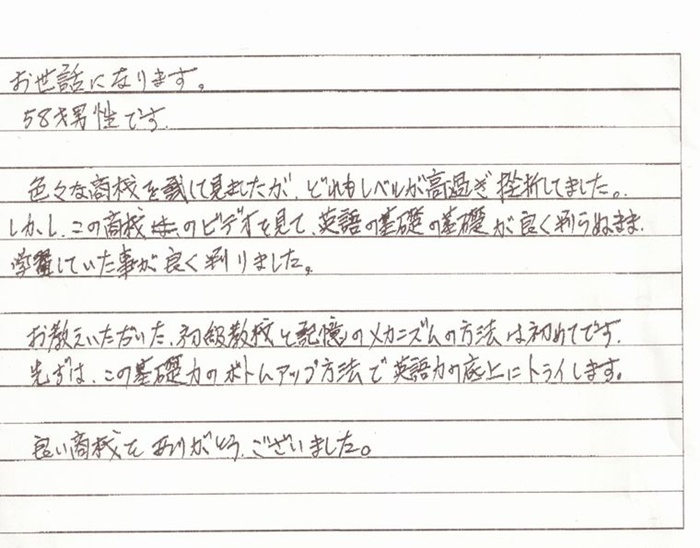 お世話になります。
58才男性です.
色々な商材を試して見ましたが、どれもレベルが高過ぎ挫折してました。
しかし、この商材のビデオを見て、英語の基礎の基礎が良く判らぬまま、
学習していた事が良く判りました。
お教えいただいた、初級教材と記憶のメカニズムの方法は初めてです.
先ずは、この基礎力のボトムアップ方法で英語力の底上にトライします。
良い商材をありがとうございました。